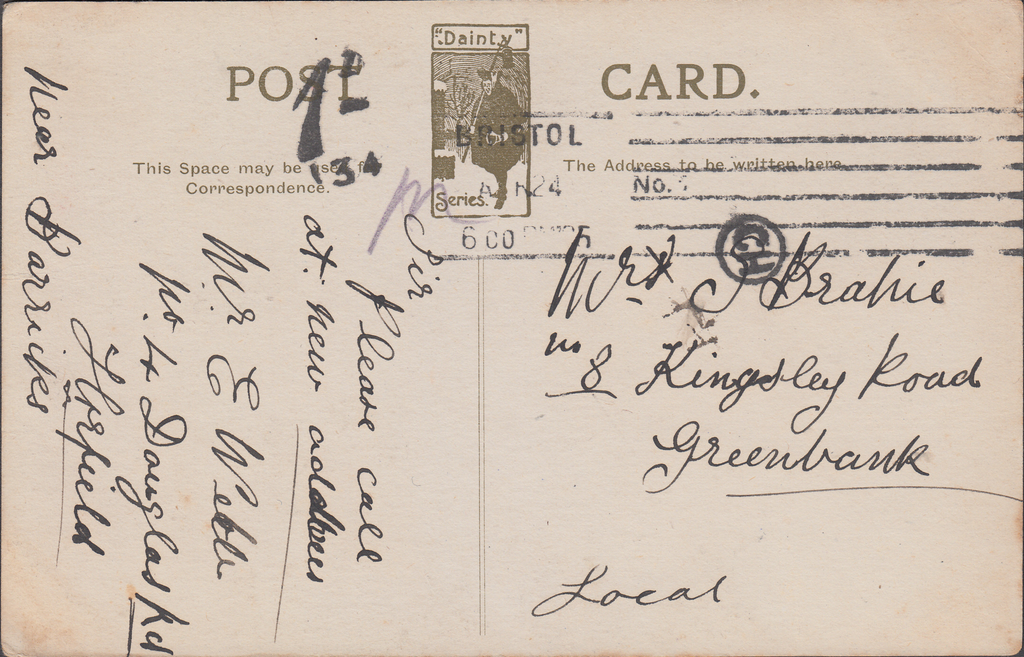 "Dainty"
Series.
POST CARD.
This Space may be used f
Correspondence.
The Address to be written here
BRISTOL
No.
6 00 PM
24
1D
3A
CH
Sir
Please call
at new address
Mr E Webb
no 14 Douglas Rd
Horfield
near Barricks
Mr J Brahie
no 8 Kingsley Road
Greenbank
Local